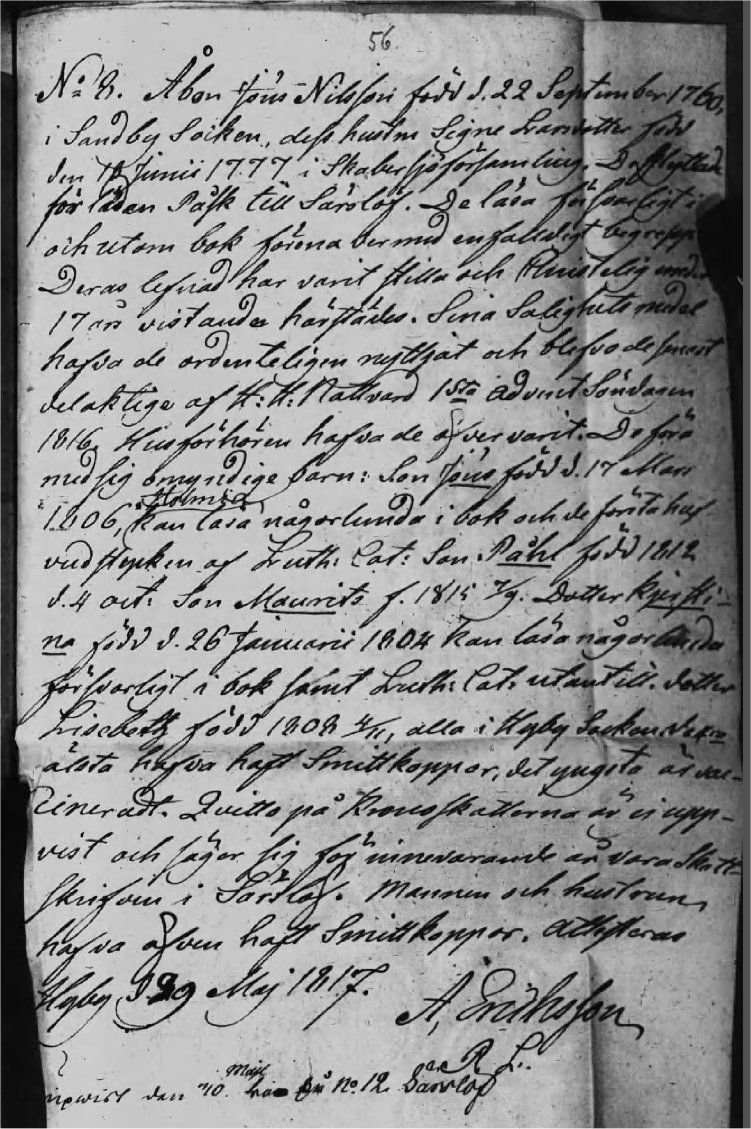 56.
No 8. Åbon Jöns Nilsson född d. 22 September 1760,
i Sandby Socken, dess hustru Signe Larsdotter född
den Junii 1777 i Skabersjö församling. De flyttade
för låden Påsk till Särslöf. De läsa försvarligt i
och utom bok förena dermed enfaldigt begrepp
Deras lefnad har varit stilla och Christelig under
17 års vistande härstädes. Sina Salighets medel
hafva de ordenteligen nyttjat och blefvo de senast
delaktige af H: H: Nattvard 1sta Advent Söndagen
1816. Husförhören hafva de öfvervarit. De föra
med sig omyndige barn: Son Jöns född d. 17 Mars
1806, kan läsa någorlunda i bok och de första huf
vudstycken af Luth: Cat: Son Påhl född 1812
d. 4 oct: Son Maurits f. 1815 7/9. Dotter Kjersti-
na född d. 26 Januarii 1804 kan läsa någorlunda
försvarligt i bok samt Luth: Cat: utantill. dotter
Lisebeth född 1808 4/11, alla i Hyby Socken. De
älsta hafva haft Smittkoppor, det yngsta är vac-
cineradt. Qvitto på Kronoskatterna är ej upp-
vist och säger sig för innevarande år vara Skatt-
skrifven i Särslöf. Mannen och hustrun
hafva äfven haft Smittkoppor. Attesteras
Hyby d. 29 Maj 1817.
A. Erichsson
P. L.
upwist den 10 No 12. Särslöf